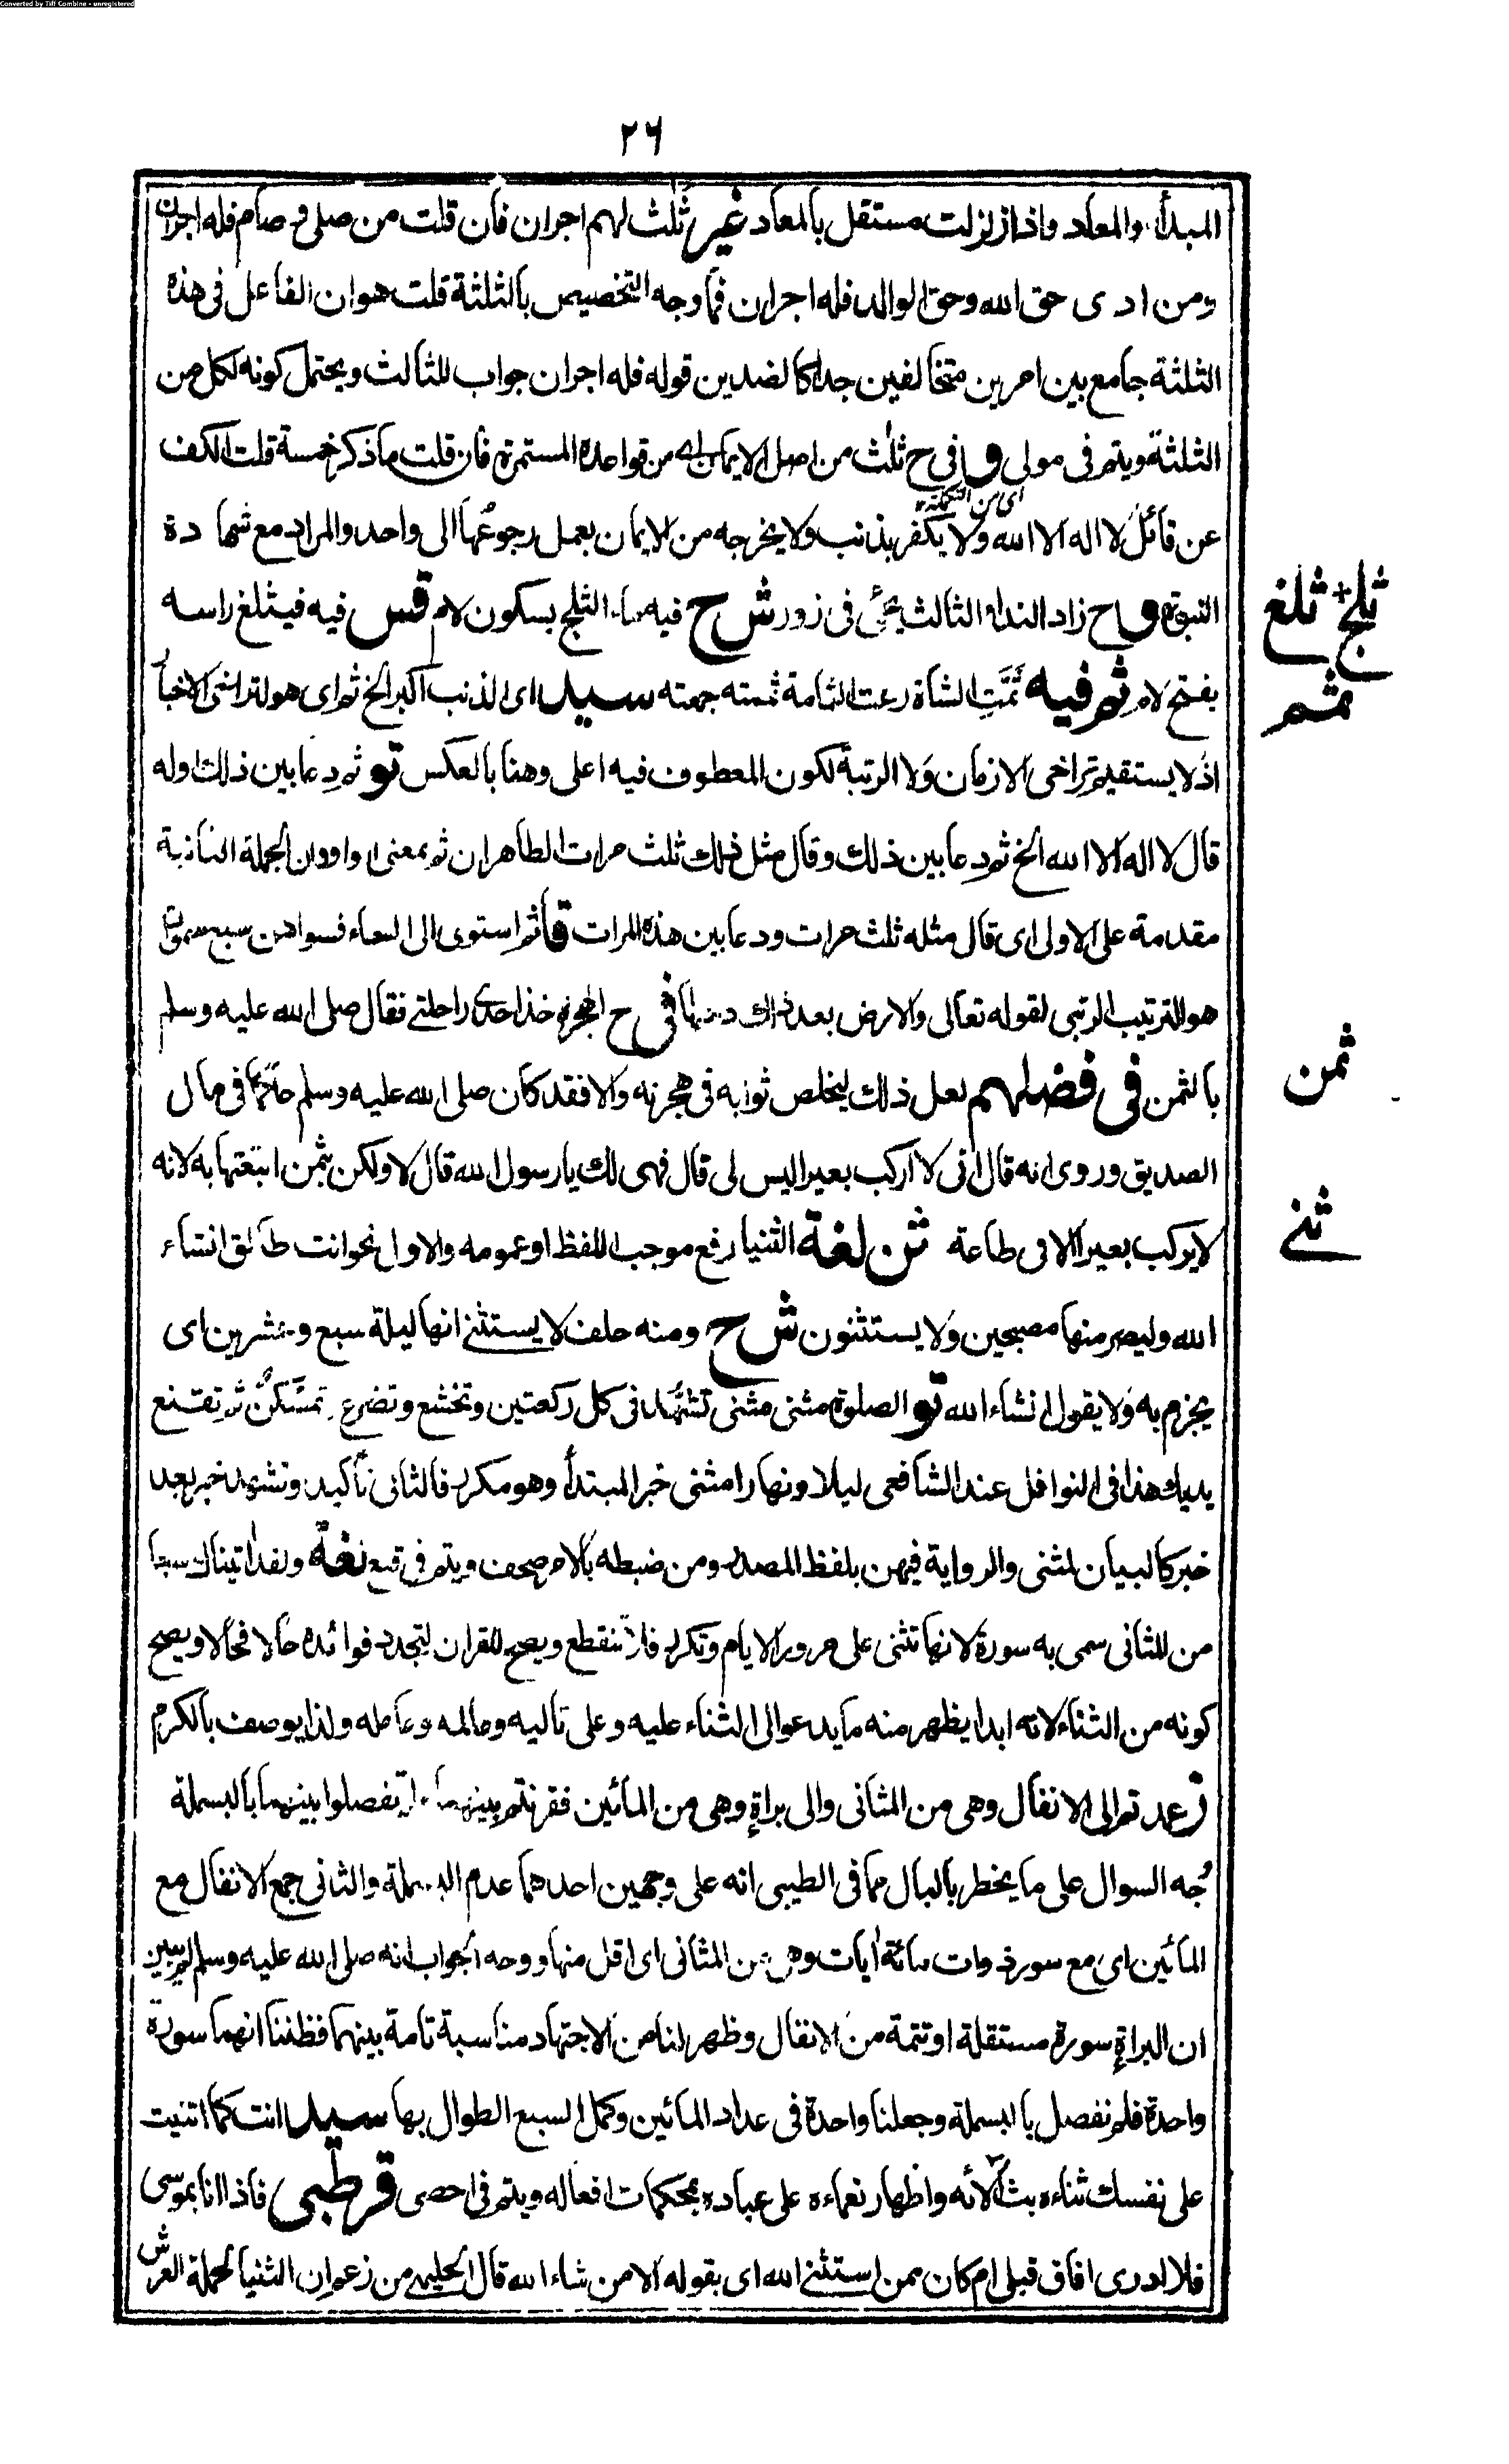 Converted by Tiff Combine - unregistered
٢٦
المبدأ والمعاد واذا زلزلت مستقل بالمعاد غير ثلث لهم اجران فان قلت من صلى و صام فله اجران
ومن ادى حق الله وحق الوالد فله اجران فما وجه التخصيص بالثلثة قلت هو ان الفاعل فى هذه
الثلثة جامع بين امرين متخالفين جدا كالضدين قوله فله اجران جواب للثالث ويحتمل كونه لكل من
الثلثة ويتم فى مولى و فى ح ثلث من اصل الايمان اى من قواعده المستمرة فان قلت ما ذكر خمسة قلت الكف
اى من التكملة
عن قائل لا اله الا الله ولا يكفر بذنب ولا يخرجه من الايمان بعمل رجوعها الى واحد والمراد مع شهادة
النبوة و ح زاد النداء الثالث يجئ فى زور ش ح فيه ماء الثلج بسكون لام قس فيه فيثلغ راسه
ثلج + ثلغ
بفتح لام ثم فيه ثمت الشاة رعت الثمامة ثمته جمعته سيد اى الذنب اكبر الخ ثم اى هو لتراخى الاخبار
ثمم
اذ لا يستقيم تراخى الازمان ولا الرتبة لكون المعطوف فيه اعلى وهنا بالعكس تو ثم دعا بين ذلك اوله
قال لا اله الا الله الخ ثم دعا بين ذلك وقال مثل ذلك ثلث مرات الظاهر ان ثم بمعنى الواو وان الجملة الثانية
مقدمة على الاولى اى قال مثله ثلث مرات ودعا بين هذه المرات قا ثم استوى الى السماء فسواهن سبع سموات
هو الترتيب الرتبى لقوله تعالى والارض بعد ذلك دحها فى ح الهجرة خذ احدى راحلتى فقال صلى الله عليه وسلم
بالثمن فى فضلهم لعل ذلك ليخلص ثوابه فى هجرته والا فقد كان صلى الله عليه وسلم حاكما فى مال
ثمن
الصديق وروى انه قال انى لا اركب بعيرا ليس لى قال فهى لك يا رسول الله قال لا ولكن بثمن ابتعتها به لانه
لا يركب بعيرا الا فى طاعة ثن لغة الثنيا رفع موجب اللفظ او عمومه والاول نحو انت طالق انشاء
ثنے
الله وليصرمنها مصبحين ولا يستثنون ش ح ومنه حلف لا يستثنے انها ليلة سبع وعشرين اى
يجزم به ولا يقول انشاء الله تو الصلوة مثنى مثنى تشهد فى كل ركعتين وتخشع وتضرع تمسكن ثم تقنع
يديك هذا فى النوافل عند الشافعى ليلا ونهارا مثنى خبر المبتدأ وهو مكرر فالثانى تأكيد وتشهد خبر بعد
خبر كالبيان لمثنى والرواية فيهن بلفظ المصدر ومن ضبطه بالامر صحف ويتم فى قنع نغة ولقد اتيناك سبعا
من المثانى سمى به سورة لانها تثنى على مرور الايام وتكرر فلا تنقطع ويصح للقران لتجدد فوائده حالا فحالا ويصح
كونه من الثناء لانه ابدا يظهر منه ما يدعو الى الثناء عليه وعلى تاليه وعالمه وعامله ولذا يوصف بالكرم
ز عمدتم الى الانفال وهى من المثانى والى براة وهى من المأئين فقرنتم بينهما ولم تفصلوا بينهما بالبسملة
وجه السوال على ما يخطر بالبال مما فى الطيبى انه على وجهين احدهما عدم البسملة والثانى جمع الانفال مع
المأئين اى مع سور ذوات مائة ايات وهى من المثانى اى اقل منها ووجه الجواب انه صلى الله عليه وسلم لم يبين
ان البراة سورة مستقلة او تتمة من الانفال وظهر لنا من الاجتهاد مناسبة تامة بينهما فظننا انهما سورة
واحدة فلم نفصل بالبسملة وجعلنا واحدة فى عداد المأئين وكمل السبع الطوال بها سيد انت كما اثنيت
على نفسك ثناءه بث آلائه واظهار نعماءه على عباده بمحكمات افعاله ويتم فى احصى قرطبى فاذا انا بموسى
فلا ادرى افاق قبلى ام كان ممن استثنے الله اى بقوله الا من شاء الله قال الحليمى من زعم ان الثنيا لحملة العرش